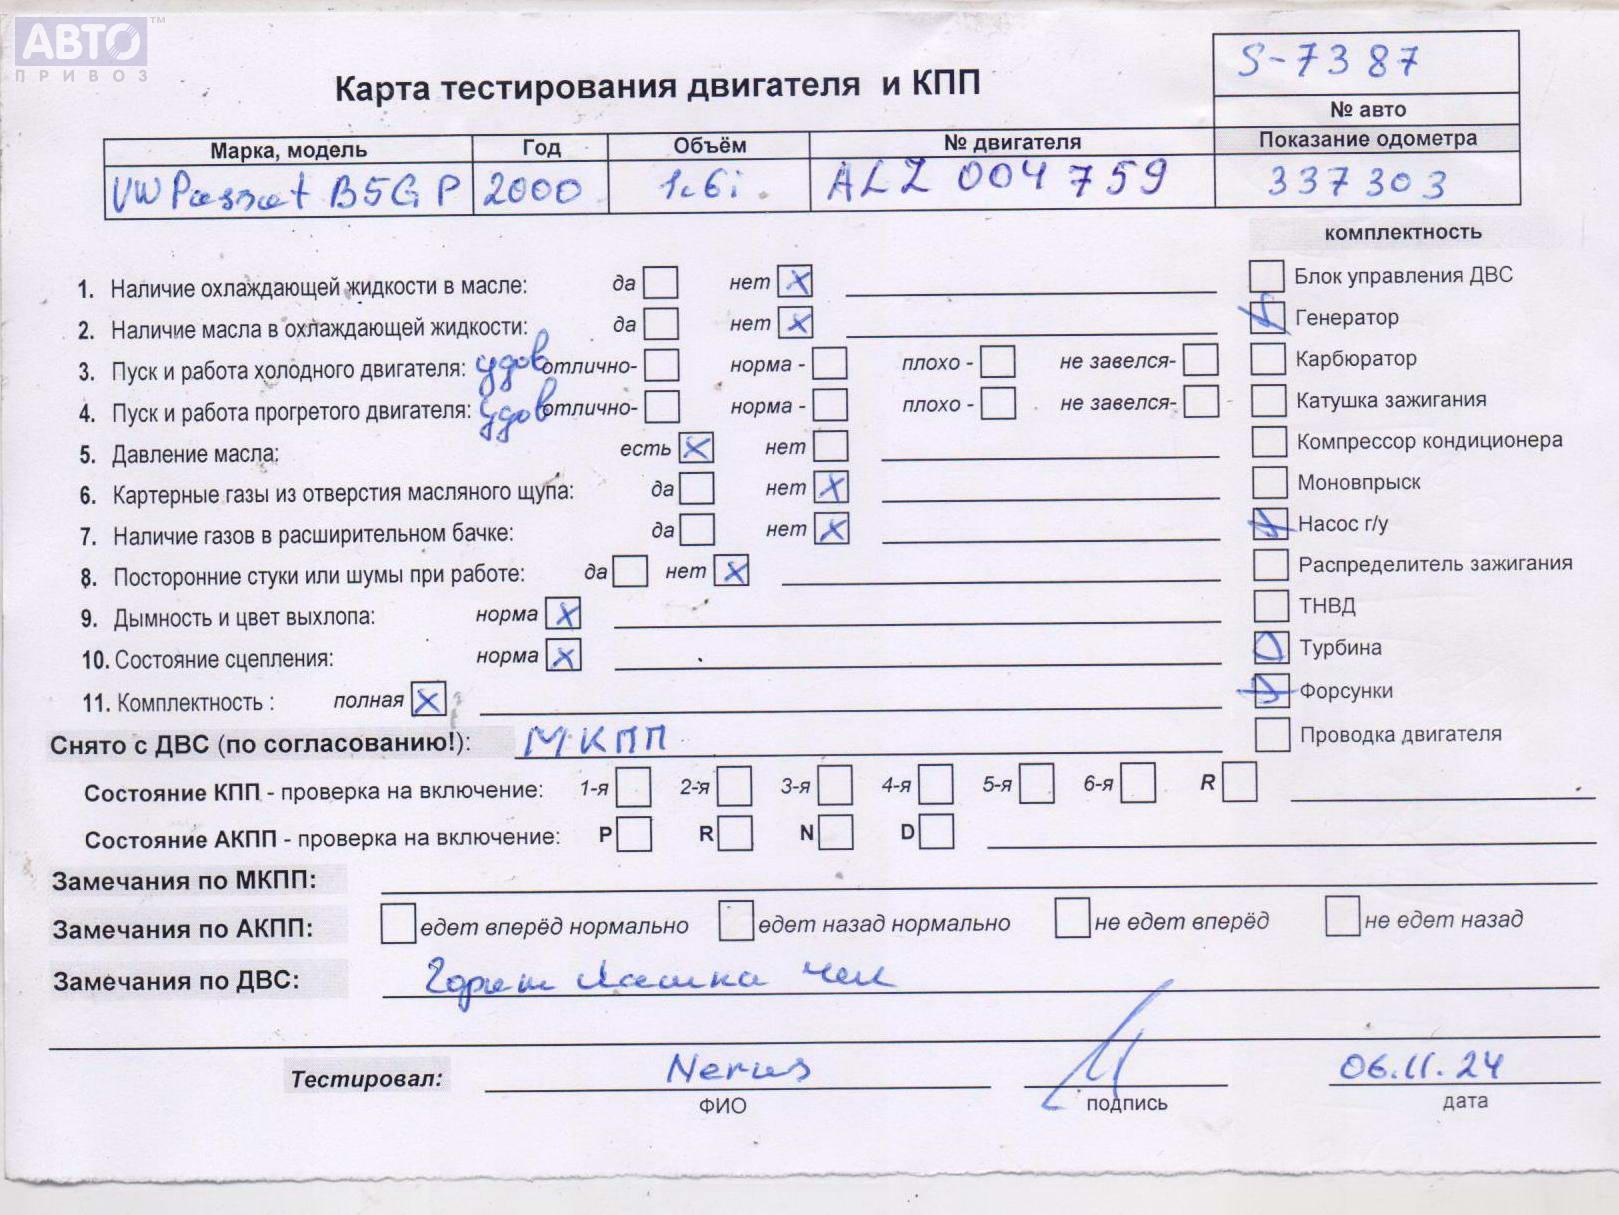 АВТО™
ПРИВОЗ
Карта тестирования двигателя и КПП
S-7387
№ авто
Марка, модель Год Объём № двигателя Показание одометра
VW Passat B5GP 2000 1.6i ALZ 004759 337303
комплектность
1. Наличие охлаждающей жидкости в масле: да нет X
2. Наличие масла в охлаждающей жидкости: да нет X
3. Пуск и работа холодного двигателя: удов отлично- норма - плохо - не завелся-
4. Пуск и работа прогретого двигателя: удов отлично- норма - плохо - не завелся-
5. Давление масла; есть X нет
6. Картерные газы из отверстия масляного щупа: да нет X
7. Наличие газов в расширительном бачке: да нет X
8. Посторонние стуки или шумы при работе: да нет X
9. Дымность и цвет выхлопа: норма X
10. Состояние сцепления: норма X
11. Комплектность : полная X
Блок управления ДВС
Генератор
Карбюратор
Катушка зажигания
Компрессор кондиционера
Моновпрыск
Насос г/у
Распределитель зажигания
ТНВД
Турбина
Форсунки
Проводка двигателя
Снято с ДВС (по согласованию!): МКПП
Состояние КПП - проверка на включение: 1-я 2-я 3-я 4-я 5-я 6-я R
Состояние АКПП - проверка на включение: P R N D
Замечания по МКПП:
Замечания по АКПП: едет вперёд нормально едет назад нормально не едет вперёд не едет назад
Замечания по ДВС: Горит лампа чек
Тестировал: 06.11.24
ФИО подпись дата